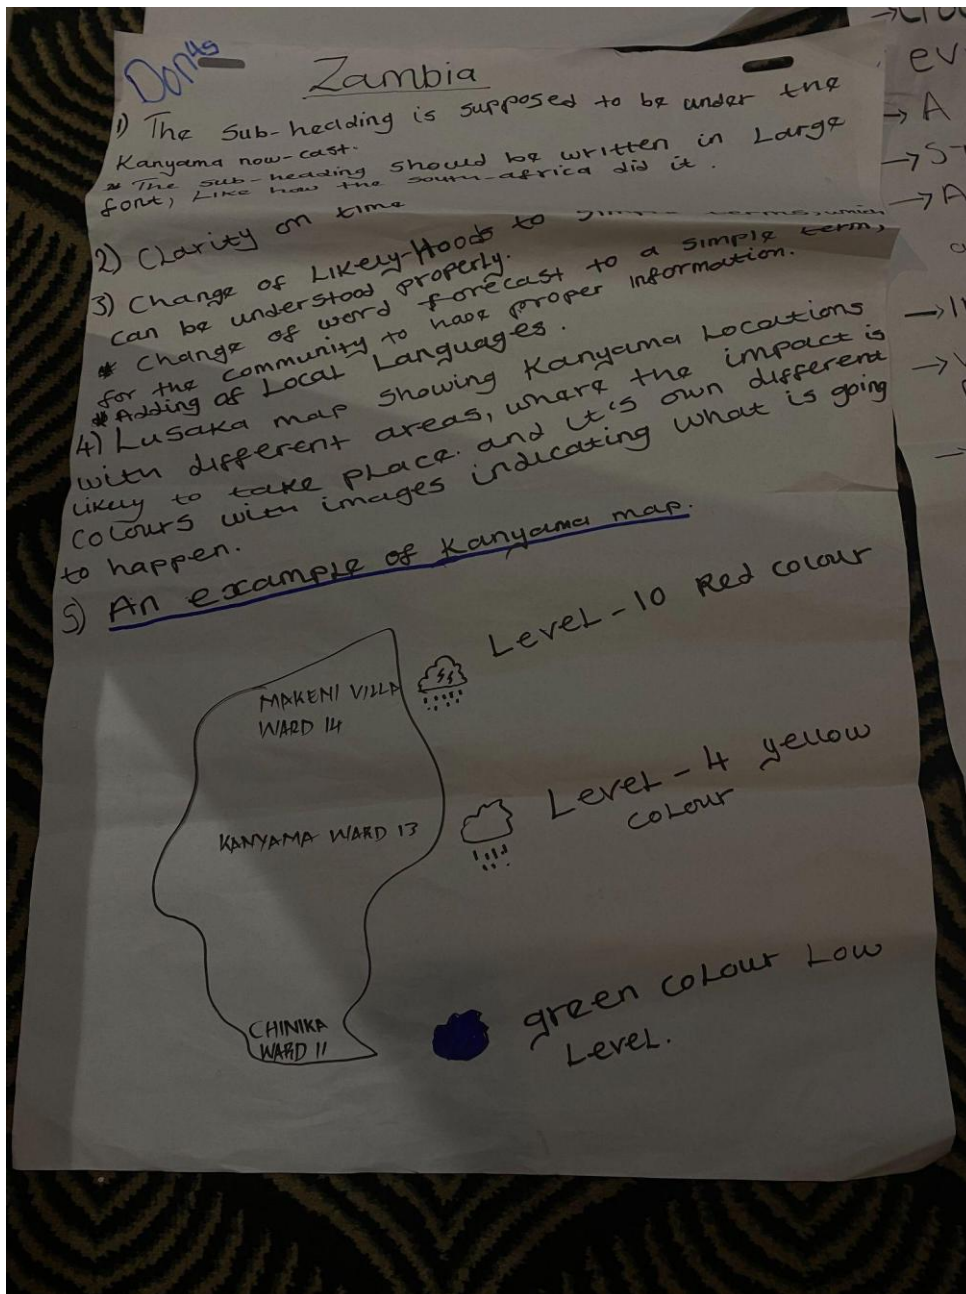 Zambia
1) The Sub-heading is supposed to be under the
Kanyama now-cast.
* The sub-heading should be written in Large
font, Like how the south-africa did it.
2) Clarity on time
3) Change of Likely-Hoods to simple terms, which
can be understood properly.
* Change of word forecast to a simple term,
for the community to have proper information.
* Adding of Local Languages.
4) Lusaka map showing Kanyama Locations
with different areas, where the impact is
likely to take place. and it's own different
colours with images indicating what is going
to happen.
5) An example of Kanyama map.
Level-10 Red colour
MAKENI VILLA
WARD 14
Level-4 yellow
colour
KANYAMA WARD 13
green colour Low
Level.
CHINIKA
WARD 11
ev
→ A
→ A